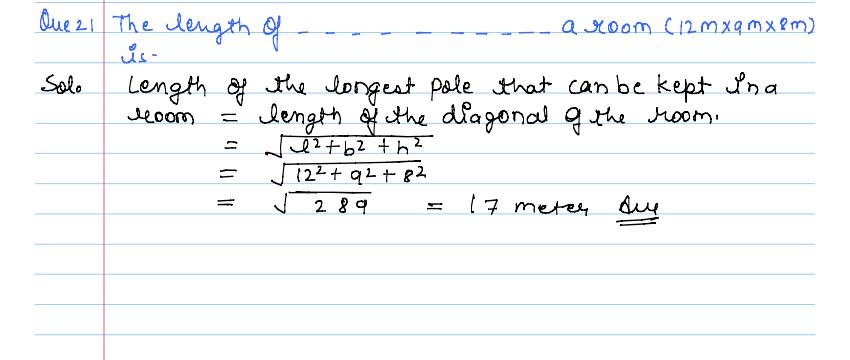 Que 21 The length of - - - - - - - - - - - a room (12m×9m×8m)
is-
Sol. Length of the longest pole that can be kept in a
room = length of the diagonal of the room.
= √l²+b²+h²
= √12²+9²+8²
= √289 = 17 meter Ans